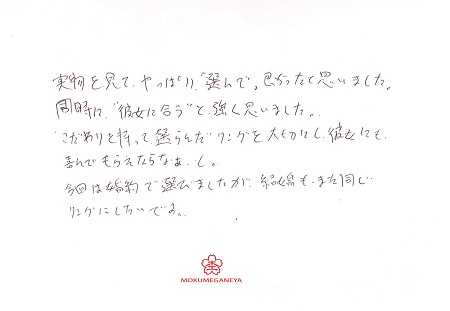 実物を見て、やっぱり、"選んで"良かったと思いました。
同時に、"彼女に合う"と、強く思いました。
"こだわりを持って、選らんだ"リングを大切にし、彼女にも、
喜んでもらえたらなぁ…と。
今回は婚約で選びましたが、結婚も、また同じ
リングにしたいです。
MOKUMEGANEYA